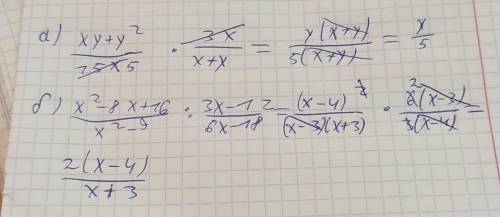 а) (xy+y²)/(25x5) · 3x/(x+x) = y(x+y)/(5(x+y)) = y/5
б) (x²-8x+16)/(x²-9) : (3x-12)/(6x-18) = (x-4)²/((x-3)(x+3)) · 6(x-3)/(3(x-4)) =
2(x-4)/(x+3)